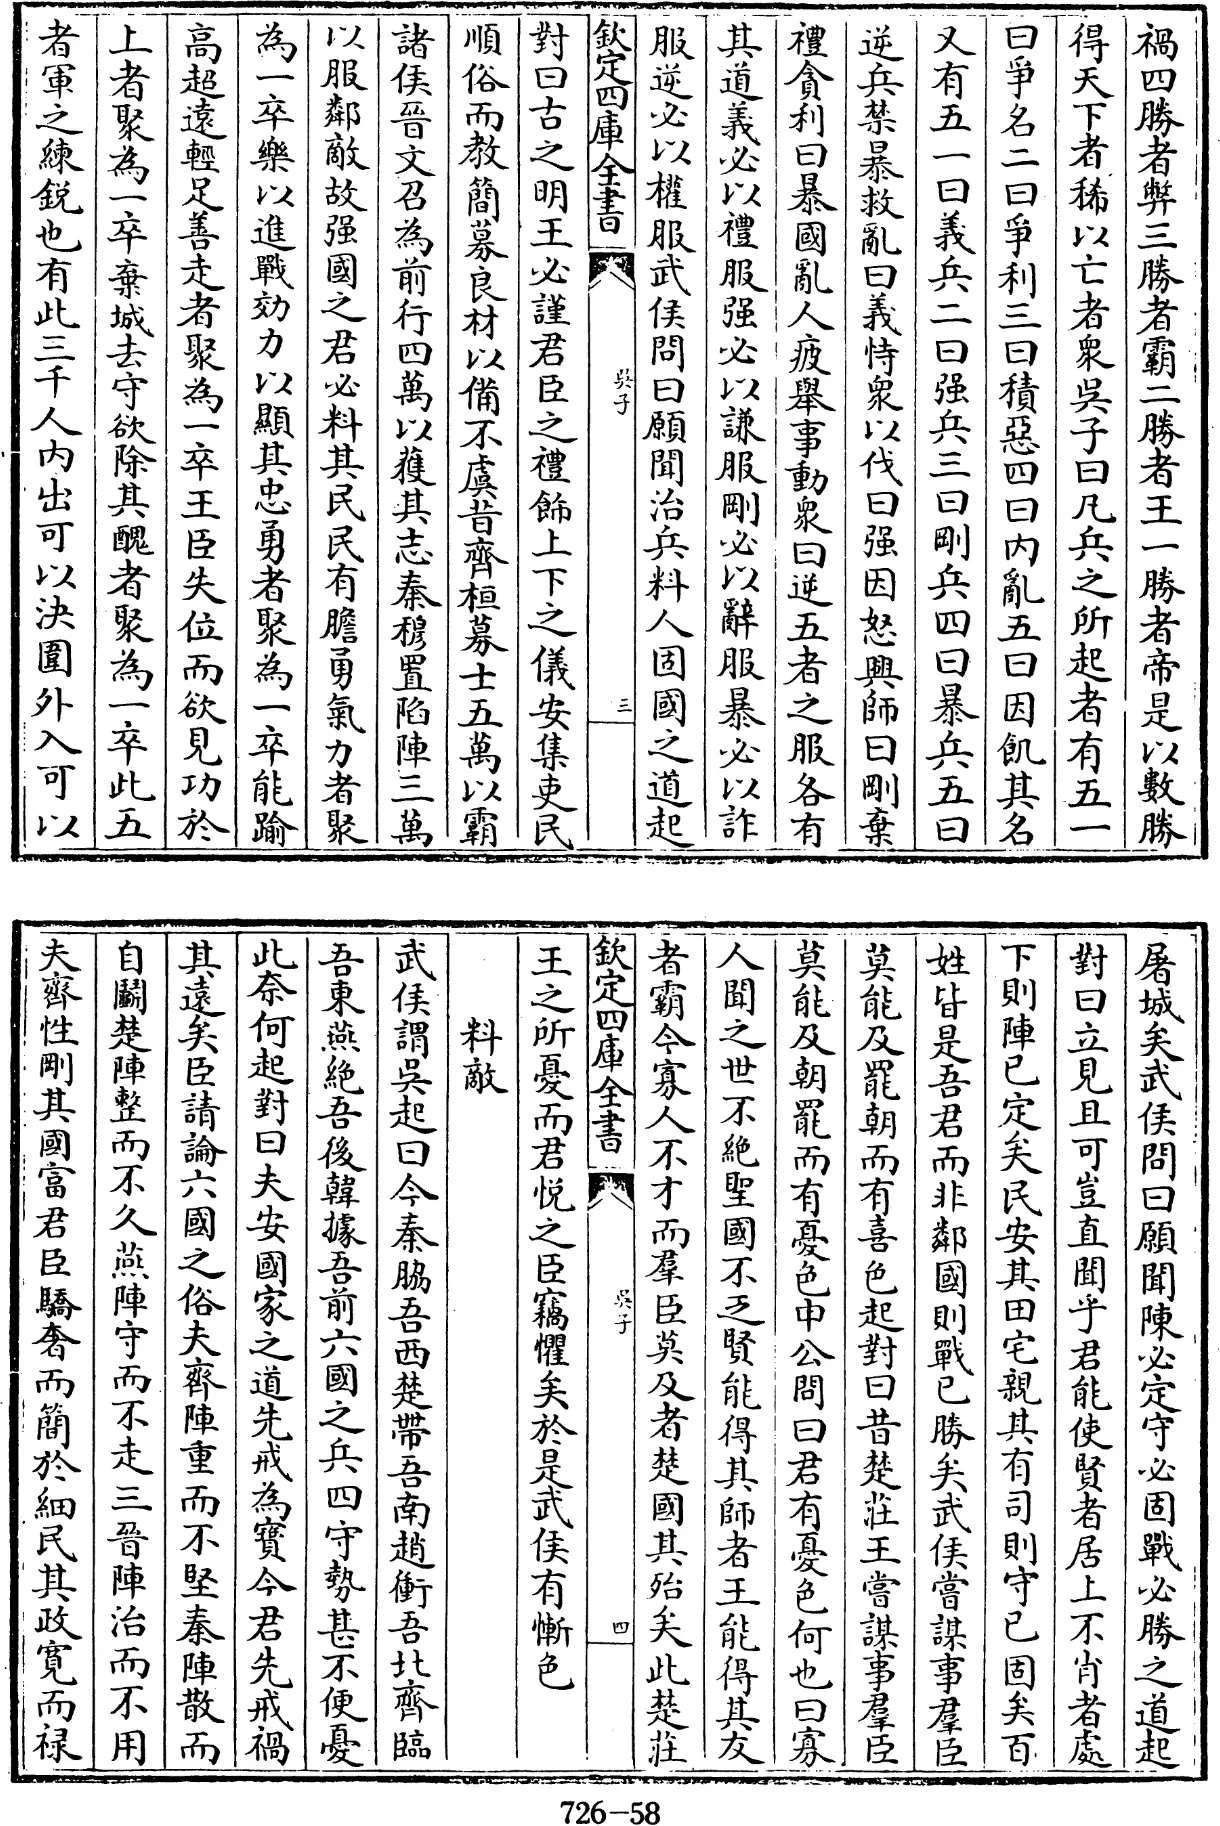 禍四勝者弊三勝者霸二勝者王一勝者帝是以數勝
得天下者稀以亡者衆吳子曰凡兵之所起者有五一
曰爭名二曰爭利三曰積惡四曰内亂五曰因飢其名
又有五一曰義兵二曰强兵三曰剛兵四曰暴兵五曰
逆兵禁暴救亂曰義恃衆以伐曰强因怒興師曰剛棄
禮貪利曰暴國亂人疲舉事動衆曰逆五者之服各有
其道義必以禮服强必以謙服剛必以辭服暴必以詐
服逆必以權服武侯問曰願聞治兵料人固國之道起
欽定四庫全書 吳子 三
對曰古之明王必謹君臣之禮飾上下之儀安集吏民
順俗而教簡募良材以備不虞昔齊桓募士五萬以霸
諸侯晉文召為前行四萬以獲其志秦穆置陷陣三萬
以服鄰敵故强國之君必料其民民有膽勇氣力者聚
為一卒樂以進戰効力以顯其忠勇者聚為一卒能踰
高超遠輕足善走者聚為一卒王臣失位而欲見功於
上者聚為一卒棄城去守欲除其醜者聚為一卒此五
者軍之練鋭也有此三千人内出可以決圍外入可以
屠城矣武侯問曰願聞陳必定守必固戰必勝之道起
對曰立見且可豈直聞乎君能使賢者居上不肖者處
下則陣已定矣民安其田宅親其有司則守已固矣百
姓皆是吾君而非鄰國則戰已勝矣武侯嘗謀事羣臣
莫能及罷朝而有喜色起對曰昔楚莊王嘗謀事羣臣
莫能及朝罷而有憂色申公問曰君有憂色何也曰寡
人聞之世不絶聖國不乏賢能得其師者王能得其友
者霸今寡人不才而羣臣莫及者楚國其殆矣此楚莊
欽定四庫全書 吳子 四
王之所憂而君悦之臣竊懼矣於是武侯有慚色
料敵
武侯謂吳起曰今秦脇吾西楚帶吾南趙衝吾北齊臨
吾東燕絶吾後韓據吾前六國之兵四守勢甚不便憂
此奈何起對曰夫安國家之道先戒為寶今君先戒禍
其遠矣臣請論六國之俗夫齊陣重而不堅秦陣散而
自鬭楚陣整而不久燕陣守而不走三晉陣治而不用
夫齊性剛其國富君臣驕奢而簡於細民其政寛而禄
726-58